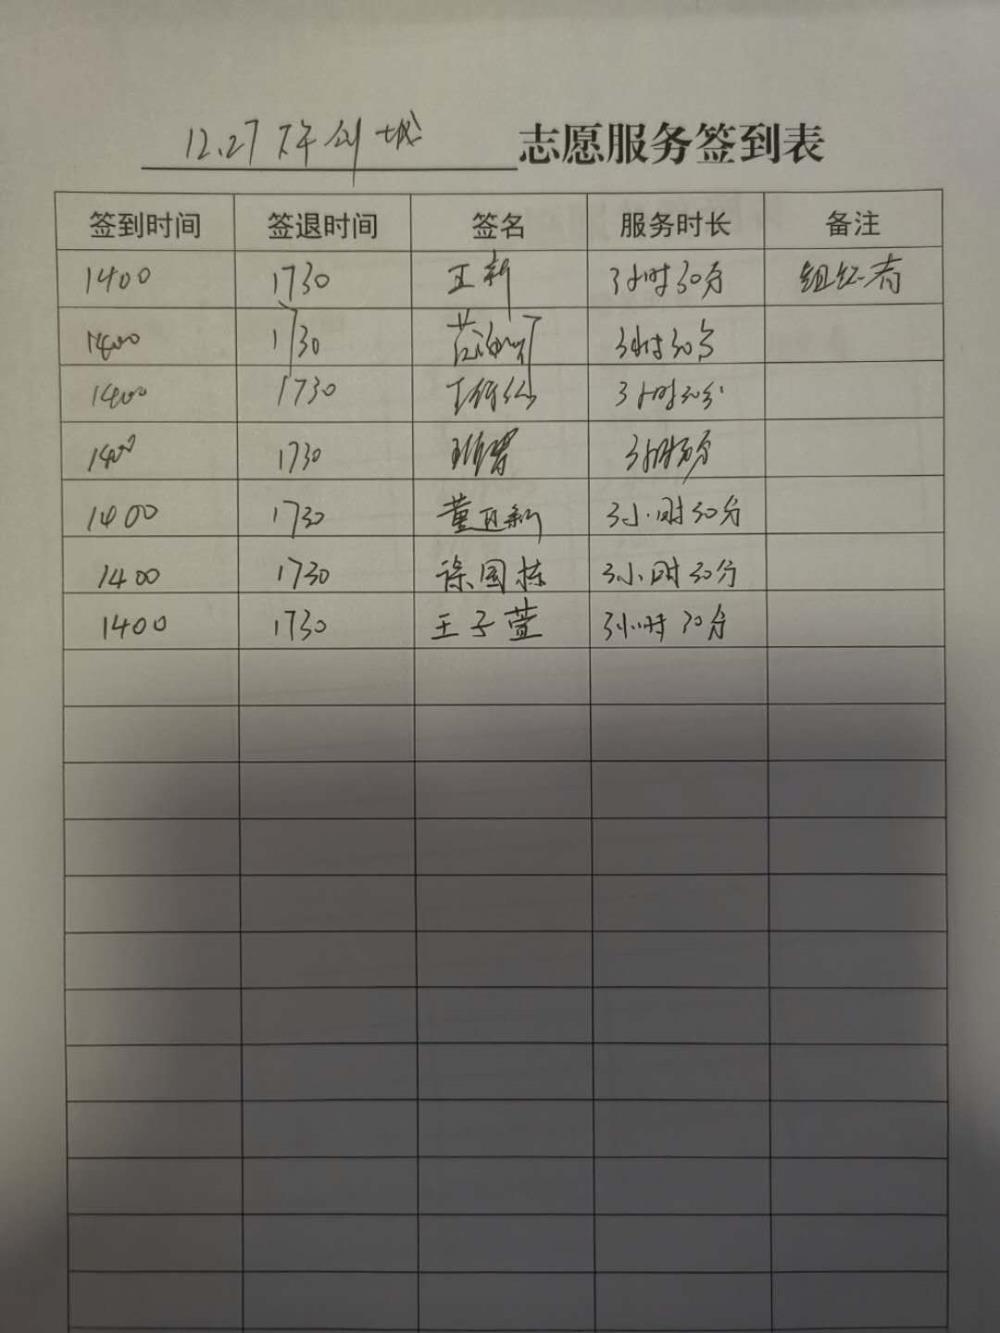 12.27 志愿服务签到表
签到时间 签退时间 签名 服务时长 备注
1400 1730 王新 3小时30分 组织者
1400 1730 3小时30分
1400 1730 3小时30分
1400 1730 3小时30分
1400 1730 董 新 3小时30分
1400 1730 徐国栋 3小时30分
1400 1730 王子萱 3小时30分